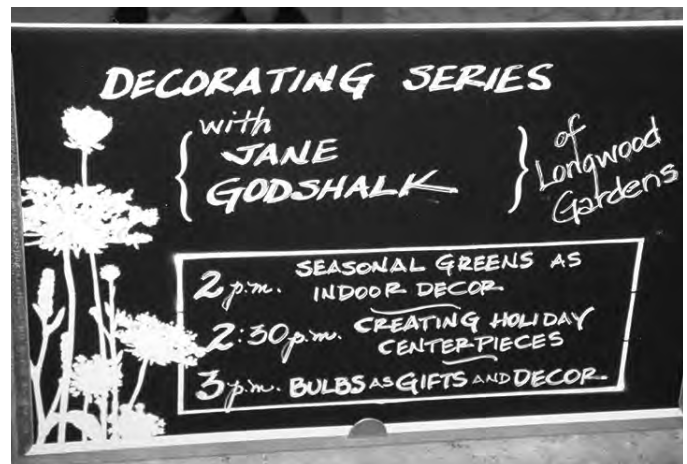 DECORATING SERIES
with
JANE
GODSHALK
of
Longwood
Gardens
2 p.m. SEASONAL GREENS AS
INDOOR DECOR
2:30 p.m. CREATING HOLIDAY
CENTERPIECES
3 p.m. BULBS AS GIFTS AND DECOR